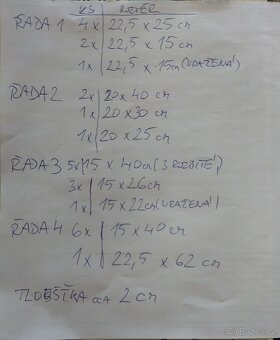 KS | ROZMĚR
ŘADA 1 4x 22,5 x 25 cm
2x 22,5 x 15 cm
1x 22,5 x 15 cm (URAŽENÁ)
ŘADA 2 2x 20 x 40 cm
1x 20 x 30 cm
1x 20 x 25 cm
ŘADA 3 5x 15 x 40 cm (3 ROZBITÉ)
3x 15 x 26 cm
1x 15 x 22 cm (URAŽENÁ)
ŘADA 4 6x 15 x 40 cm
1x 22,5 x 62 cm
TLOUŠŤKA CCA 2 cm